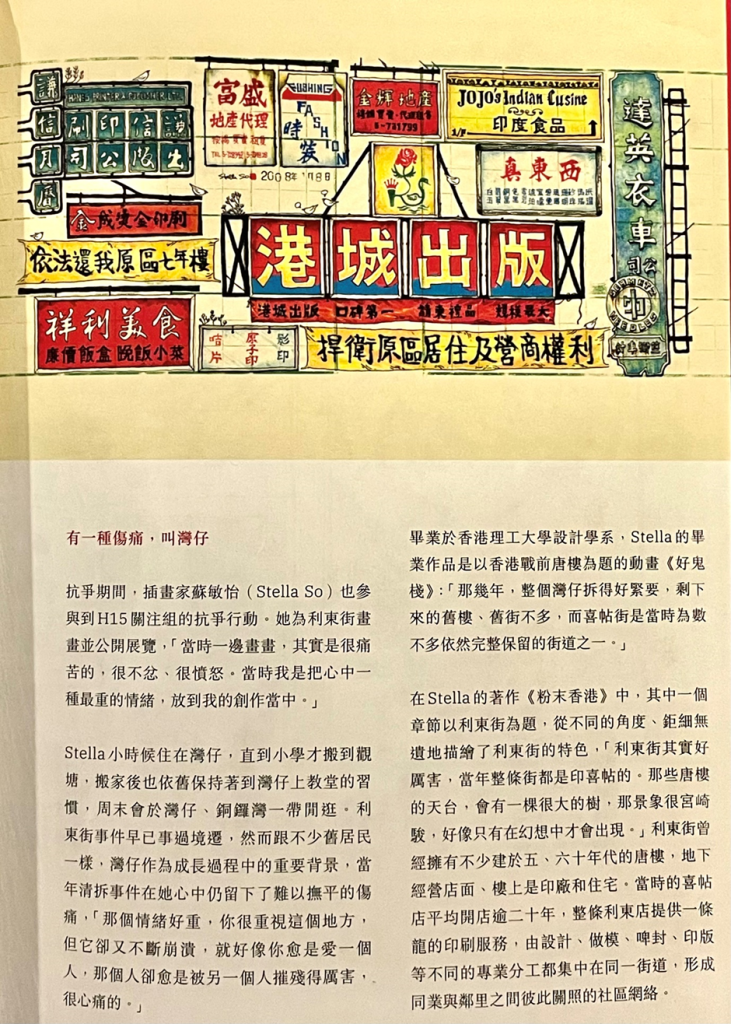 謙信月曆
謙信印刷
出版公司
富盛
地產代理
GUSHING
FASHION
時裝
金輝地產
5-731799
JOJO's Indian Cusine
印度食品
1/F
達英衣車
公司
真東西
金成燙金印刷
依法還我原區七年樓
港城出版
港城出版 口碑第一
祥利美食
廉價飯盒 晚飯小菜
咭片
原子印
影印
捍衛原區居住及營商權利
有一種傷痛，叫灣仔
抗爭期間，插畫家蘇敏怡（Stella So）也參
與到H15關注組的抗爭行動。她為利東街畫
畫並公開展覽，「當時一邊畫畫，其實是很痛
苦的，很不忿、很憤怒。當時我是把心中一
種最重的情緒，放到我的創作當中。」
Stella小時候住在灣仔，直到小學才搬到觀
塘，搬家後也依舊保持著到灣仔上教堂的習
慣，周末會於灣仔、銅鑼灣一帶閒逛。利
東街事件早已事過境遷，然而跟不少舊居民
一樣，灣仔作為成長過程中的重要背景，當
年清拆事件在她心中仍留下了難以撫平的傷
痛，「那個情緒好重，你很重視這個地方，
但它卻又不斷崩潰，就好像你愈是愛一個
人，那個人卻愈是被另一個人摧殘得厲害，
很心痛的。」
畢業於香港理工大學設計學系，Stella的畢
業作品是以香港戰前唐樓為題的動畫《好鬼
棧》：「那幾年，整個灣仔拆得好緊要，剩下
來的舊樓、舊街不多，而喜帖街是當時為數
不多依然完整保留的街道之一。」
在Stella的著作《粉末香港》中，其中一個
章節以利東街為題，從不同的角度、鉅細無
遺地描繪了利東街的特色，「利東街其實好
厲害，當年整條街都是印喜帖的。那些唐樓
的天台，會有一棵很大的樹，那景象很宮崎
駿，好像只有在幻想中才會出現。」利東街曾
經擁有不少建於五、六十年代的唐樓，地下
經營店面、樓上是印廠和住宅。當時的喜帖
店平均開店逾二十年，整條利東店提供一條
龍的印刷服務，由設計、做模、啤封、印版
等不同的專業分工都集中在同一街道，形成
同業與鄰里之間彼此關照的社區網絡。